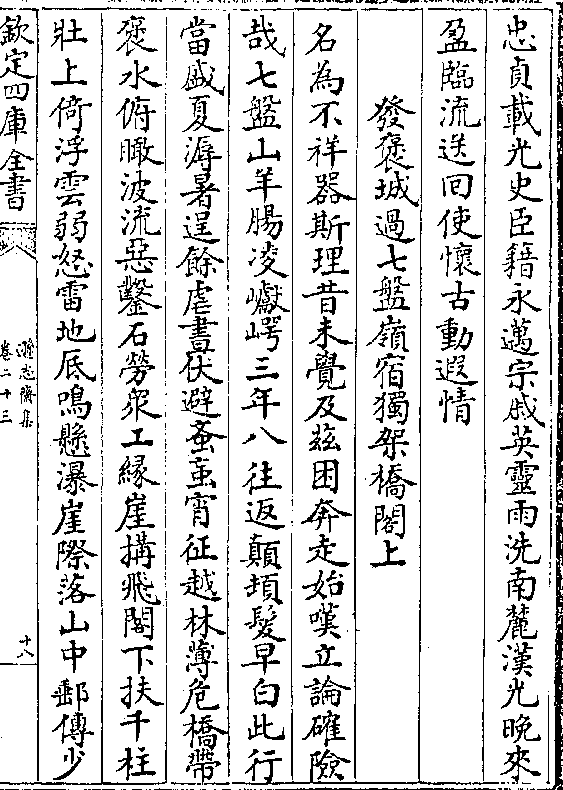 忠貞載光史臣籍永邁宗戚英靈雨洗南麓漢光晚來
盈臨流送回使懷古動遐情
發褒城過七盤嶺宿獨架橋閣上
名為不祥器斯理昔未覺及茲困奔走始嘆立論確險
哉七盤山羊腸凌巘崿三年八往返顛頓髮早白此行
當盛夏溽暑逞餘虐晝伏避蚤䖟宵征越林薄危橋帶
褒水俯瞰波流惡鑿石勞衆工緣崖搆飛閣下扶千柱
壯上倚浮雲弱怒雷地底鳴懸瀑崖際落山中郵傳少
欽定四庫全書
遜志齋集
卷二十三
十八